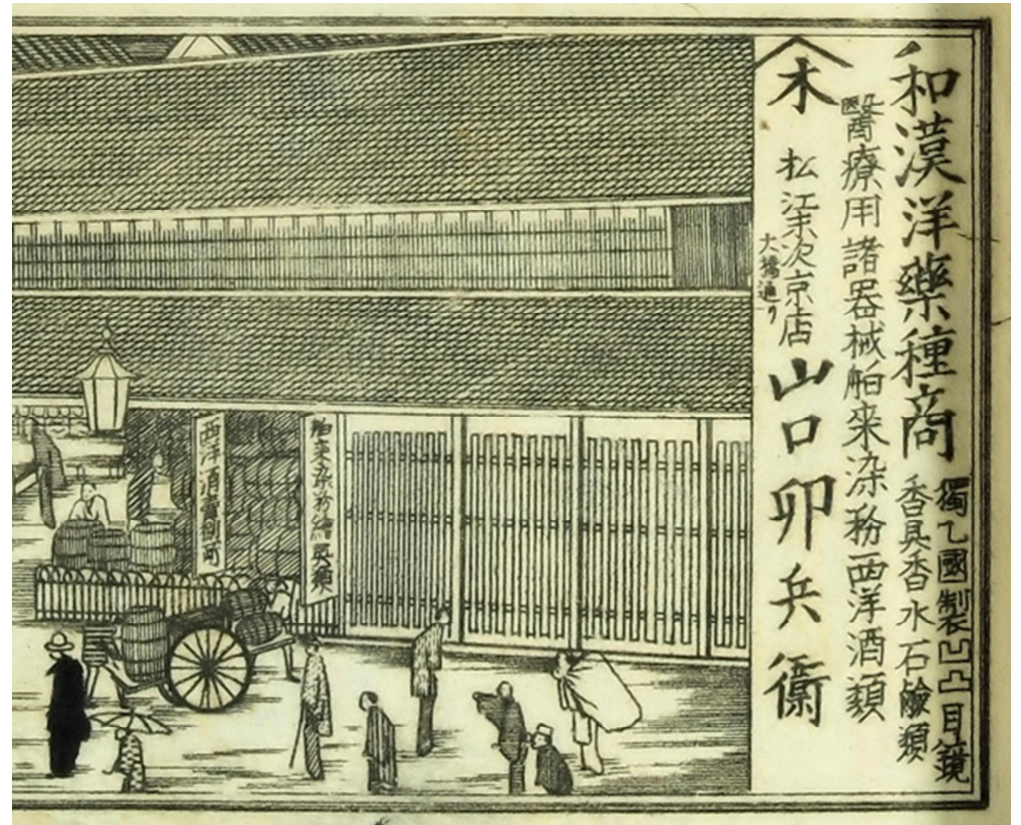 和漢洋藥種商
獨乙國製凹凸目鏡
香具香水石鹸類
醫療用諸器械舶来染粉西洋酒類
木
松江末次京店
大橋通り
山口卯兵衛
舶来染粉繪具類
西洋酒